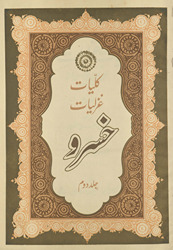 کلیات
غزلیات
خسرو
جلد دوم